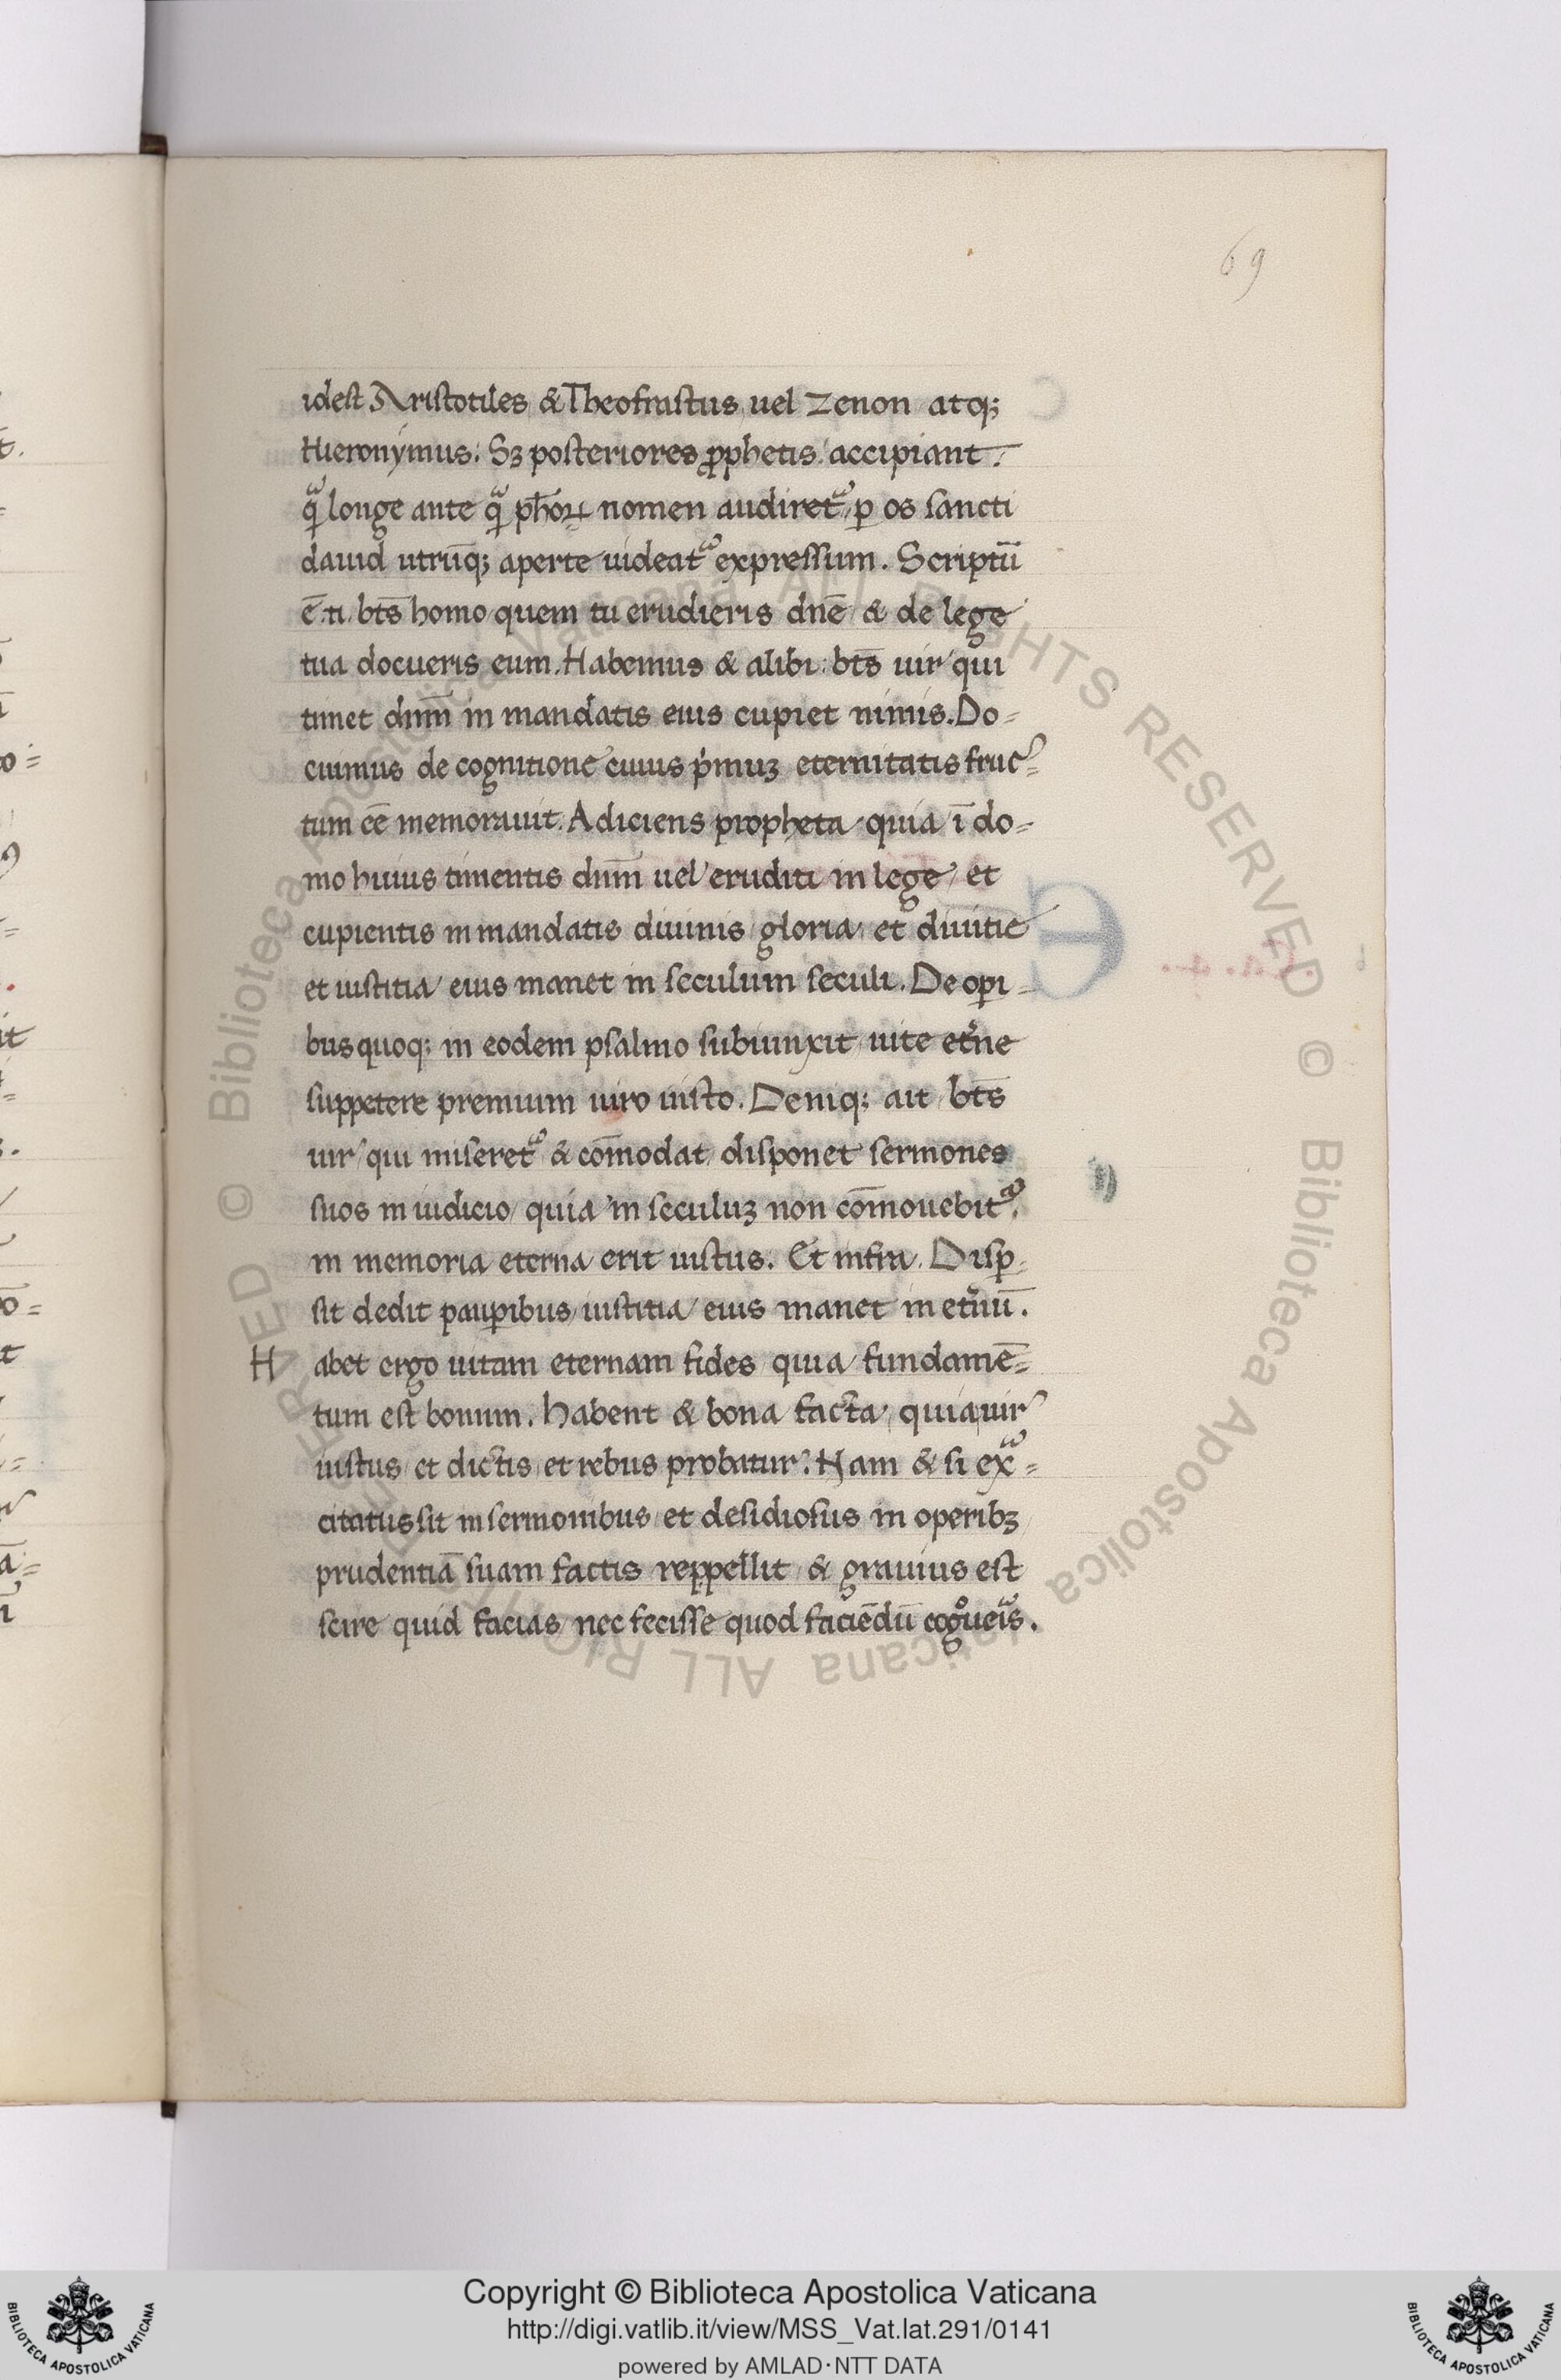 69
idest Aristotiles & Theofrastus uel Zenon atq;
Hieronymus. Sꝫ posteriores ꝓphetis accipiant.
qᷓ longe ante qᷓ ph̄oꝝ nomen audiretᷣ ꝑ os sancti
dauid utrūq; aperte uideatᷣ expressum. Scriptū
ē .n. bt̄s homo quem tu erudieris dn̄e & de lege
tua docueris eum. Habemus & alibi: bt̄s uir qui
timet dnm̄ in mandatis eius cupiet nimis. Do=
cuimus de cognitione cuius p̍muꝫ eternitatis fruc=
tum eē memorauit. Adiciens propheta quia ī do=
mo huius timentis dnm̄ uel eruditi in lege et
cupientis in mandatis diuinis gloria et diuitie
et iustitia eius manet in seculum seculi. De oꝑi=
bus quoq; in eodem psalmo subiunxit uite et̾ne
suppetere premium uiro iusto. Deniq; ait bt̄s
uir qui miseretᷣ & cōmodat disponet sermones
suos in iudicio quia in seculuꝫ non cōmouebitᷣ.
in memoria eterna erit iustus. Et infra. Disꝑ=
sit dedit pauꝑibus iustitia eius manet in et̾nū.
Habet ergo uitam eternam fides quia fundamē=
tum est bonum. Habent & bona facta quia uir
iustus et dictis et rebus probatur. Nam & si exᷓ=
citatus sit in sermonibus et desidiosus in operibꝫ
prudentiā suam factis reppellit & grauius est
scire quid facias nec fecisse quod faciēdū cogͦueis̾.
© Biblioteca Apostolica Vaticana ALL RIGHTS RESERVED
© Biblioteca Apostolica Vaticana ALL RIGHTS RESERVED
BIBLIOTECA APOSTOLICA VATICANA
Copyright © Biblioteca Apostolica Vaticana
http://digi.vatlib.it/view/MSS_Vat.lat.291/0141
powered by AMLAD·NTT DATA
BIBLIOTECA APOSTOLICA VATICANA